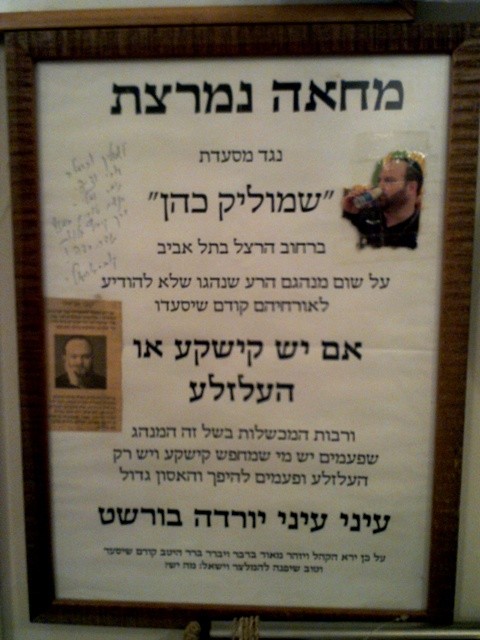 מחאה נמרצת
נגד מסעדת
"שמוליק כהן"
ברחוב הרצל בתל אביב
על שום מנהגם הרע שנהגו שלא להודיע
לאורחיהם קודם שיסעדו
אם יש קישקע או
העלזלע
ורבות המכשלות בשל זה המנהג
שפעמים יש מי שמחפש קישקע ויש רק
העלזלע ופעמים להיפך והאסון גדול
עיני עיני יורדה בורשט
על כן ירא הקהל ויזהר מאוד בדבר ויברר ברר היטב קודם שיסעד
וטוב שיפנה להמלצר וישאל: מה יש?